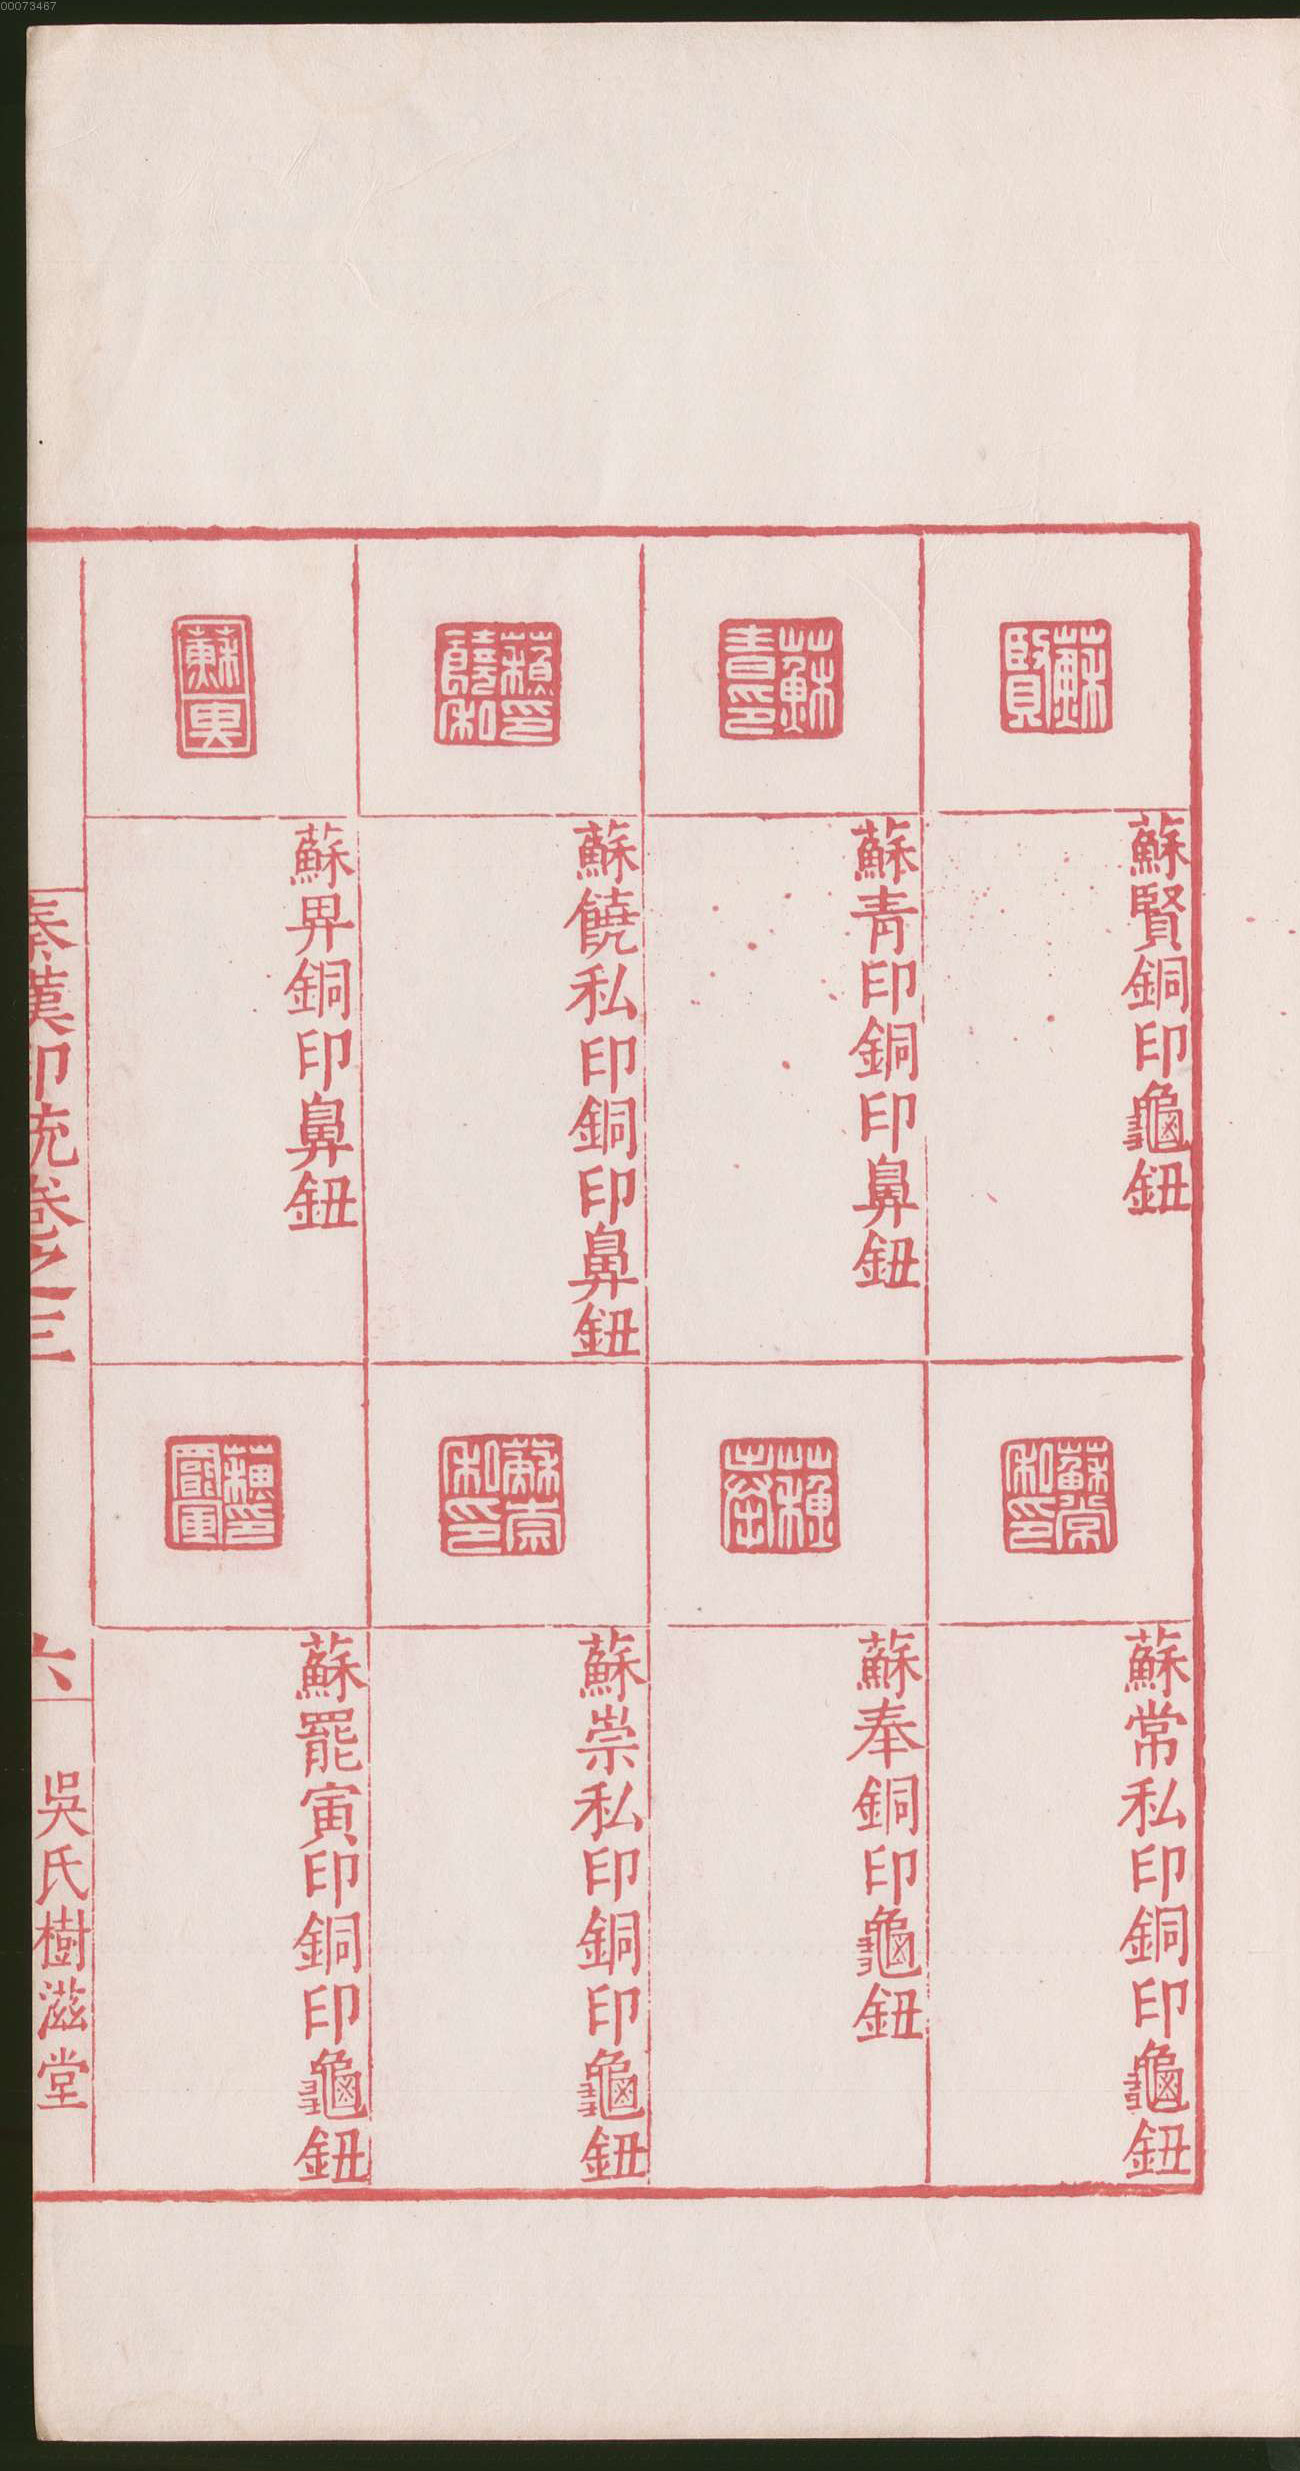 00073467
蘇賢
蘇賢銅印龜鈕
蘇常私印
蘇常私印銅印龜鈕
蘇青印
蘇青印銅印鼻鈕
蘇奉
蘇奉銅印龜鈕
蘇饒私印
蘇饒私印銅印鼻鈕
蘇崇私印
蘇崇私印銅印龜鈕
蘇
蘇畀銅印鼻鈕
蘇罷寅印
蘇罷寅印銅印龜鈕
秦漢印統卷之三
六
吳氏樹滋堂